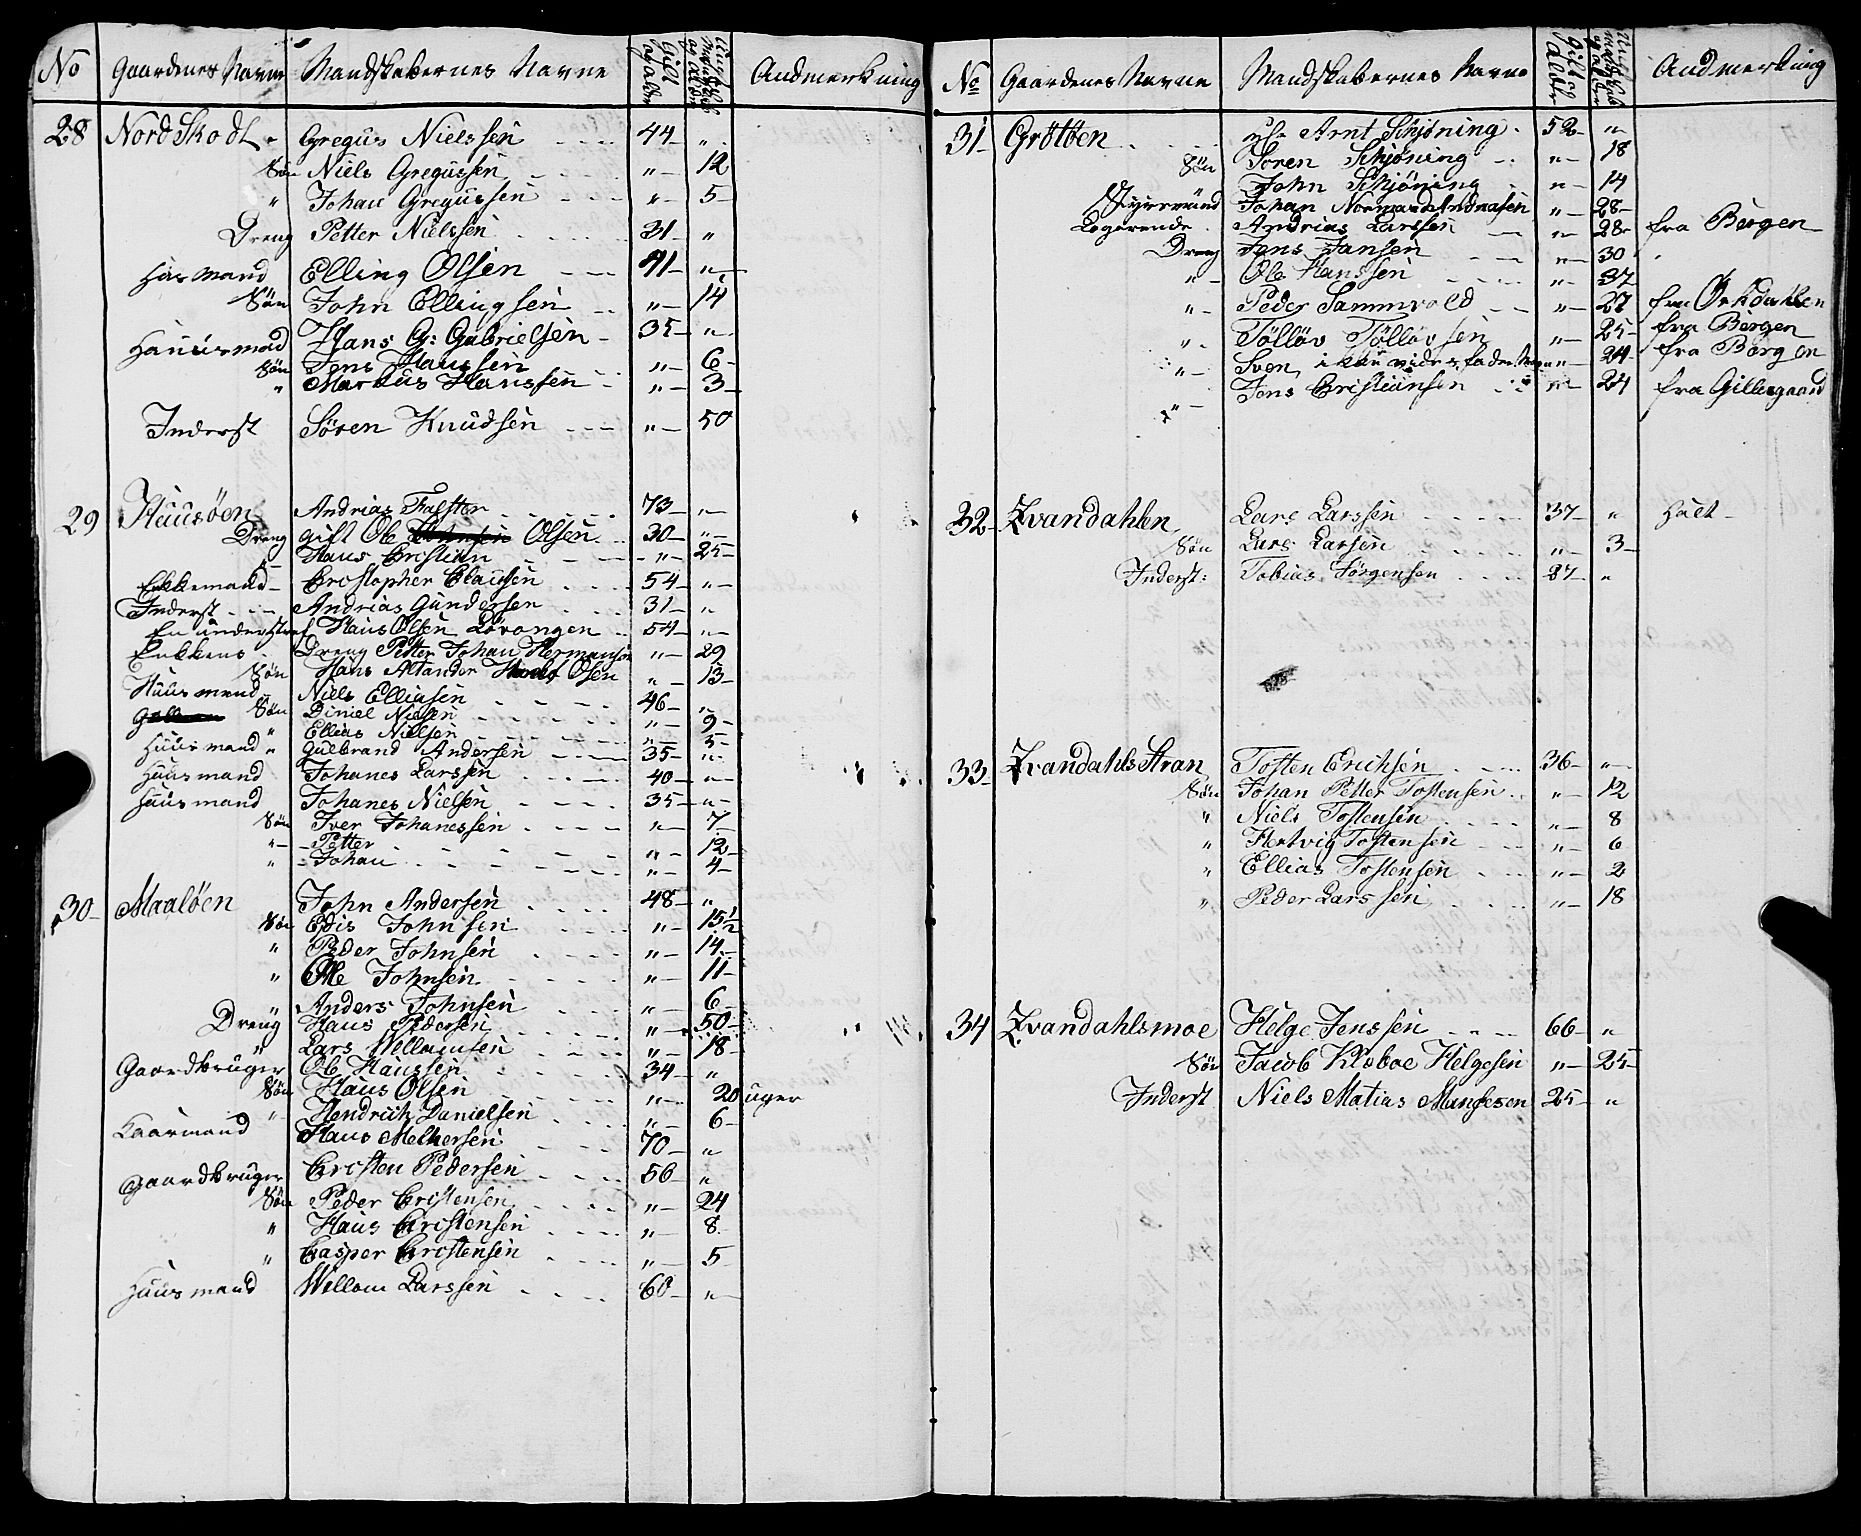 No Gaardenes Navne Mandskabernes Navne Gift og alder Andmerkning
28 Nord Skodt Gregus Nielssen 44 "
Søn Niels Gregussen " 12
" Johan Gregussen " 5
Dreng Petter Nielssen 31 "
Husmand Elling Olsen 41 "
Søn John Ellingsen " 14
Huusmad Hans G: Gabrielsen 35 "
Søn Jens Hanssen " 6
" Markus Hanssen " 3
Inderst Sören Knudsen " 50
29 Huusöen Andrias Falster 73 "
Dreng gift Ole Olsen 30 "
" Hans Cristian " 25
Enkemand Cristopher Claussen 54 "
Inderst Andrias Gundersen 31 "
En underst Hans Olsen Lövongen 54 "
Enkkens Dreng Petter Johan Hermansen " 29
Søn Hans Alxander Olsen " 13
Huusmand Niels Elliasen 46 "
Søn Diniel Nielsen " 9
" Ellias Nielsen " 5
Huusmand Gulbrand Andersen 35 "
Huusmand Johanes Larssen 40 "
Huusmand Johanes Nielsen 35 "
Søn Iver Johanessen " 7
" Petter " 12
" Johan " 4
30 Maalöen John Andersen 48 "
Søn Edis Johnsen " 15½
" Peder Johnsen " 14
" Ole Johnsen " 11
" Anders Johnsen " 6
Dreng Hans Pedersen " 50
" Lars Willamsen " 18
Gaardbruger Ole Hanssen 34 "
Søn Hans Olsen " 20 uger
" Hendrich Danielsen " 6
Kaarmand Hans Melkersen 70 "
Gaardbruger Cristen Pedersen 56 "
Søn Peder Cristensen " 24
" Hans Cristensen " 8
" Casper Cristensen " 5
Huusmand Willom Larssen 60 "
No Gaardenes Navne Mandskabernes Navne Gifte og Alder Andmerkning
31 Gröttöen Arnt Schjöning 52 "
Søn Soren Schjöning " 18
John Schjöning " 14
Styrmand Johan Normand Andreasen " 28
Logerende Andrias Larssen " 28 fra Bergen
Dreng Jens Jansen " 30
" Ole Hanssen " 37
" Peder Sammvold " 27 fra Örkdahlen
" Tölløv Tölløvsen " 25 fra Bergen
" Sven, ikke vides faders Navn " 24 fra Bergen
" Jens Cristiansen " 24 fra Gillesgaard
32 Qvandahlen Lars Larssen 37 " Halt
Søn Lars Larsen " 3
Inderst: Tobias Jörgensen 27 "
33 Qvandahls Stran Tosten Erichsen 36 "
Søn Johan Petter Tostensen " 12
" Niels Tostensen " 8
" Hertvig Tostensen " 6
" Ellias Tostensen " 2
" Peder Larssen " 18
34 Qvandahlsmoe Helge Jenssen 66 "
Søn Jacob Kloboe Helgesen " 25
Inderst Niels Matias Monsesen 25 "